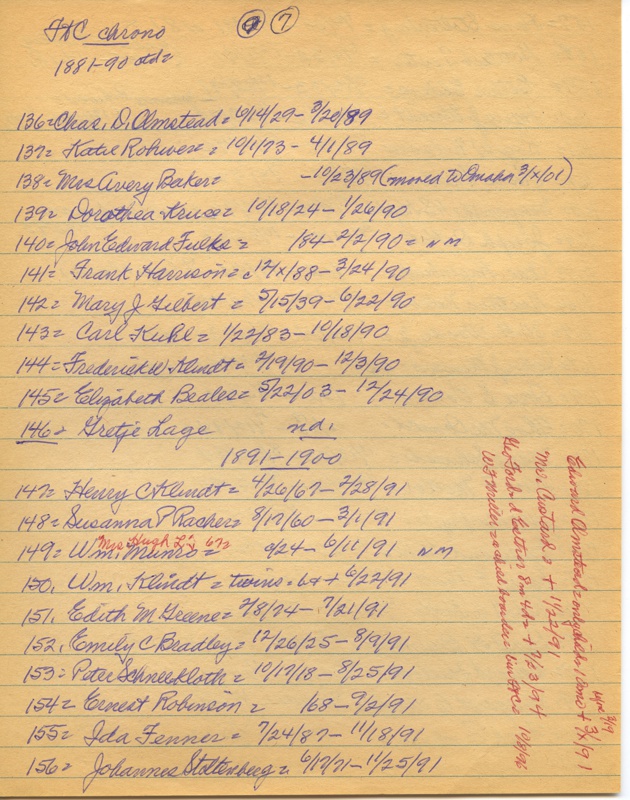 FDC chrono
7
1881-90 ctd=
136=Chas. D. Olmstead= 6/14/29-3/20/89
137= Katie Rohwer= 10/1/73-4/1/89
138=Mrs Avery Baker= -10/23/89(moved to Omaha 3/x/01)
139= Dorothea Kruse= 10/18/24-1/26/90
140=John Edward Fulks= 184-2/2/90= NM
141= Frank Harrison= c12/x/88-3/24/90
142= Mary J Gilbert= 5/15/39-6/22/90
143= Carl Kuhl= 1/22/83-10/18/90
144=Frederick W Klindt= 2/19/90-12/3/90
145=Elizabeth Beales= 5/22/03-12/24/90
146= Gretje Lage nd.
1891-1900
147= Henry C Klindt= 4/26/67-2/28/91
148=Susanna P Racher= 8/17/60-3/1/91
Mrs Hugh L
149= Wm. Munro= /24-6/11/91 NM
150. Wm. Klindt= twins= b+ + 6/22/91
151. Edith M Greene= 2/8/74-7/21/91
152. Emily C Bradley= 12/26/25-8/9/91
153=Peter Schneekloth= 10/17/18-8/25/91
154= Ernest Robinson= 168-9/2/91
155= Ida Fenner= 7/24/87-11/18/91
156= Johannes Stoltenberg= 6/17/71-11/25/91
Edward Olmstead= 10mo + 3/x/91
Mr. Custard + 1/22/91
8m 4da + 7/23/94
W J Miller= 10/8/96